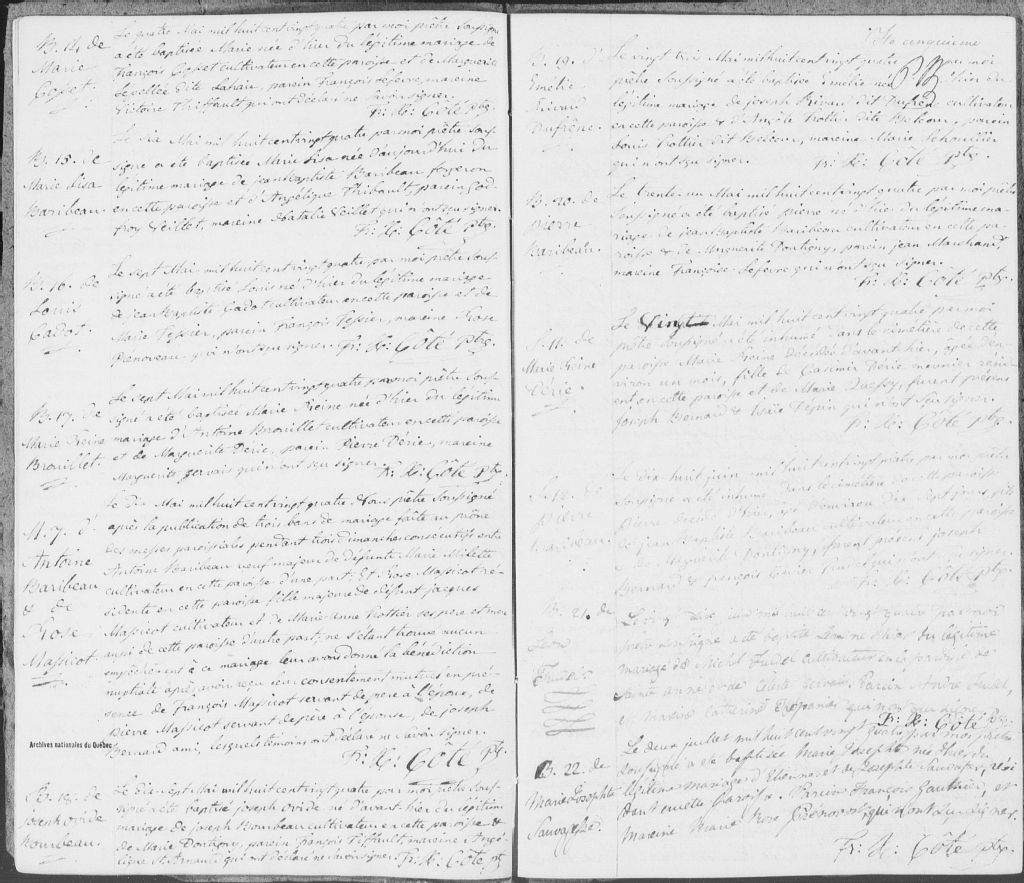 B. 14. de
Marie
Cosset.
Le quatre Mai mil huit cent vingt quatre par moi prêtre soussigné
a été baptisée Marie née d'hier du légitime mariage de
François Cosset cultivateur en cette paroisse et de Marguerite
dite Lahaie, parein François Lefevre, mareine
Victoire Thiffault qui ont déclaré ne savoir signer.
Fr. X. Côté ptre.
B. 15. de
Marie Lisa
Baribeau.
Le six Mai mil huit cent vingt quatre par moi prêtre sous-
signé a été baptisée Marie Lisa née d'aujourd'hui du
légitime mariage de jean Baptiste Baribeau forgeron
en cette paroisse et d'Angélique Thibault, parein God-
froy Veillet, mareine Natalie Veillet qui n'ont su signer.
Fr. X. Côté ptre.
B. 16. de
Louis
Cadot.
Le sept Mai mil huit cent vingt quatre par moi prêtre sous-
signé a été baptisé Louis né d'hier du légitime mariage
de jean Baptiste Cadot cultivateur en cette paroisse et de
Marie Tessier, parein François Tessier, mareine Rose
qui n'ont su signer. Fr. X. Côté ptre.
B. 17. de
Marie Reine
Brouillet.
Le sept Mai mil huit cent vingt quatre par moi prêtre sous-
signé a été baptisée Marie Reine née d'hier du légitime
mariage d'Antoine Brouillet cultivateur en cette paroisse
et de Marguerite Derie, parein Pierre Derie, mareine
Marguerite Gervais qui n'ont su signer. Fr. X. Côté ptre.
M. 7. d'
Antoine
Baribeau
& de
Rose
Massicot.
Le dix Mai mil huit cent vingt quatre Nous prêtre soussigné
après la publication de trois bans de mariage faite au prône
des messes paroissiales pendant trois dimanches consécutifs entre
Antoine Baribeau veuf majeur de défunte Marie Milette
cultivateur en cette paroisse d'une part; Et Rose Massicot ré-
sidente en cette paroisse fille majeure de défunt jacques
Massicot cultivateur et de Marie Anne Rothier ses pere et mere
aussi de cette paroisse d'autre part; ne s'étant trouvé aucun
empêchement à ce mariage leur avons donné la bénédiction
nuptiale après avoir reçu leur consentement mutuel en pré-
sence de François Massicot servant de pere à l'époux, de
Pierre Massicot servant de père à l'épouse, de joseph
Bernard ami, lesquels témoins ont déclaré ne savoir signer.
Fr. X. Côté ptre.
Archives nationales du Québec
B. 18. de
Joseph Ovide
Bourbeau.
Le dix-sept Mai mil huit cent vingt quatre par moi prêtre sous-
signé a été baptisé joseph Ovide né d'avant hier du légitime
mariage de joseph Bourbeau cultivateur en cette paroisse &
de Marie Dontigny, parein françois Tiffault, mareine Angé-
lique St Arnauld qui ont déclaré ne savoir signer. Fr. X. Côté ptre.
f.te cinquieme
B. 19. d'
Emélie
Rivard
Dufrêne.
Le vingt trois Mai mil huit cent vingt quatre par moi
prêtre soussigné a été baptisée Emélie née d'hier du
légitime mariage de joseph Rivard dit Dufrêne cultivateur
en cette paroisse & d'Angèle Trottier dite Belcour, parein
Louis Trottier dit Belcour, mareine Marie
qui n'ont su signer. Fr. X. Côté ptre.
B. 20. de
Pierre
Baribeau.
Le trente-un Mai mil huit cent vingt quatre par moi prêtre
soussigné a été baptisé pierre né d'hier du légitime ma-
riage de jean Baptiste Baribeau cultivateur en cette pa-
roisse & de Marguerite Dontigny, parein jean Marchand
mareine Françoise Lefevre qui n'ont su signer.
Fr. X. Côté ptre.
S. 11. de
Marie Reine
Dérie.
Le Vingt Mai mil huit cent vingt quatre par moi
prêtre soussigné a été inhumé dans le cimetière de cette
paroisse Marie Reine décédée d'avant hier, âgée d'en-
viron un mois, fille de Casimir Derie meunier rési-
dent en cette paroisse et de Marie furent présens
Joseph Bernard & Pepin qui n'ont su signer.
Fr. X. Côté ptre.
S. 12. de
Pierre
Baribeau.
Le dix huit juin mil huit cent vingt quatre par moi prêtre
soussigné a été inhumé dans le cimetière de cette paroisse
Pierre décédé d'hier, âgé d'environ dix sept jours fils
de jean Baptiste Baribeau cultivateur en cette paroisse
& de Marguerite Dontigny, furent présens joseph
Bernard & françois qui n'ont su signer.
Fr. X. Côté ptre.
B. 21. de
Leon
Trudel
mil huit cent vingt quatre par moi
prêtre soussigné a été baptisé Leon né d'hier du légitime
mariage de Michel Trudel cultivateur en la paroisse de
Sainte anne et de Celeste Gervais. Parein André Trudel,
et mareine Catherine qui n'ont su signer.
Fr. X. Côté ptre.
B. 22. de
Marie Josephte
Sauvagesse.
Le deux juillet mil huit cent vingt quatre par moi prêtre
soussigné a été baptisée Marie Josephte née hier du
légitime mariage d'Etienne et de Josephte Sauvages, rési-
dant en cette Paroisse. Parein François Gauthier, et
Mareine Marie Rose qui n'ont su signer.
Fr. X. Côté ptre.